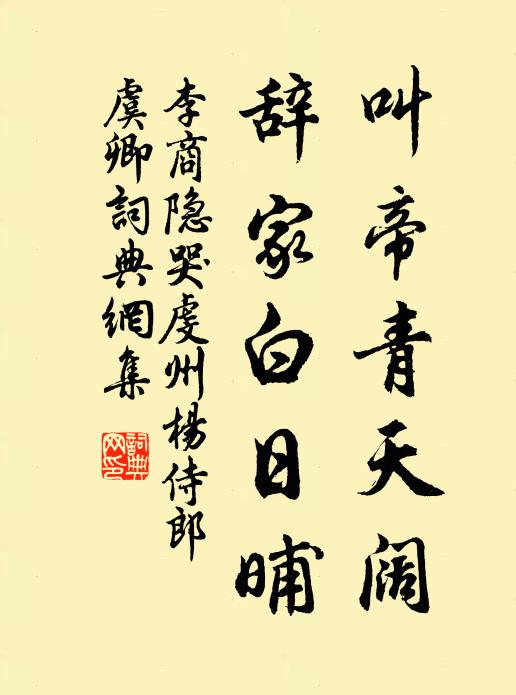 叫帝青天阔
辞家白日晡
李商隐哭虔州杨侍郎
虞卿词典网集
詞典网印